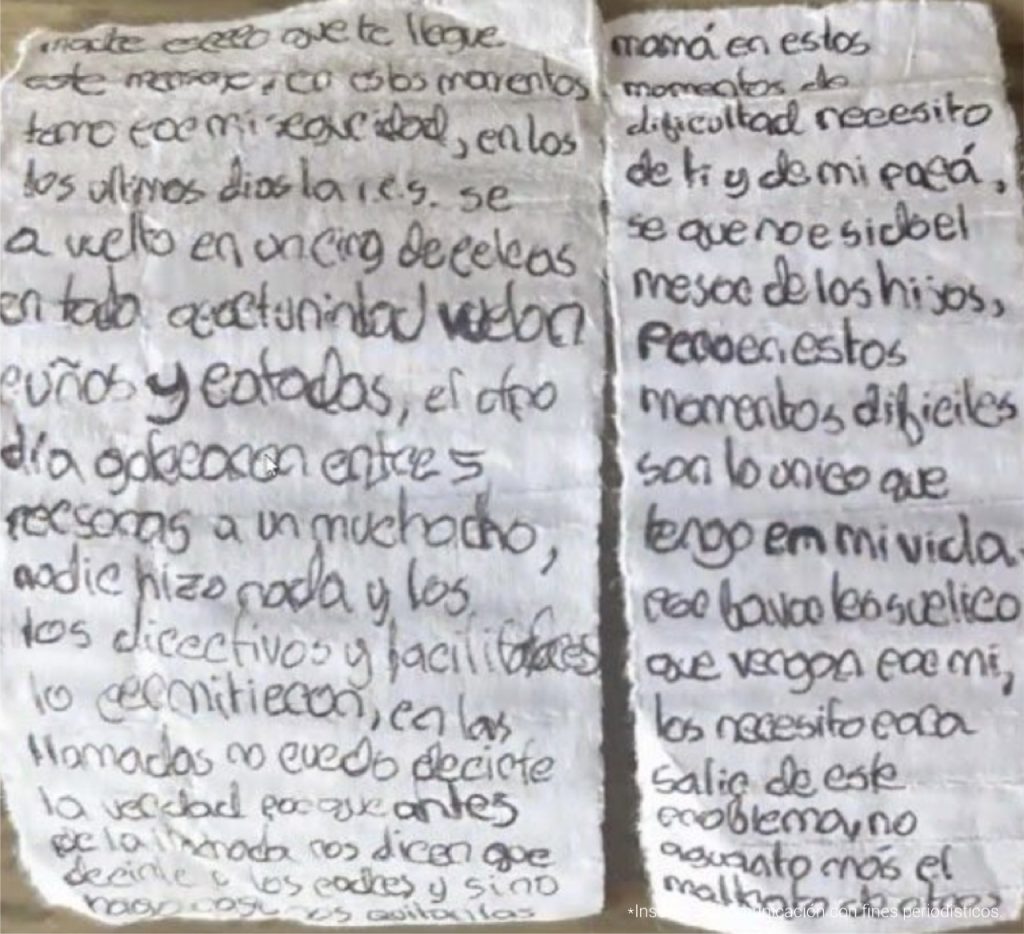 madre espero que te llegue
este mensaje, en estos momentos
temo por mi seguridad, en los
los ultimos dias la r.e.s. se
a vuelto en un ring de peleas
en toda oportunidad vuelan
puños y patadas, el otro
día golpearon entre 5
personas a un muchacho,
nadie hizo nada y los
los directivos y facilitadores
lo permitieron, en las
llamadas no puedo decirte
la verdad porque antes
de la llamada nos dicen que
decirle a los padres y sino
nos quitan las
mamá en estos
momentos de
dificultad necesito
de ti y de mi papá,
se que no e sido el
mejor de los hijos,
pero en estos
momentos dificiles
son lo unico que
tengo en mi vida.
por favor les suplico
que vengan por mi,
los necesito para
salir de este
problema, no
aguanto más el
maltrato
*comunicación con fines periodísticos.